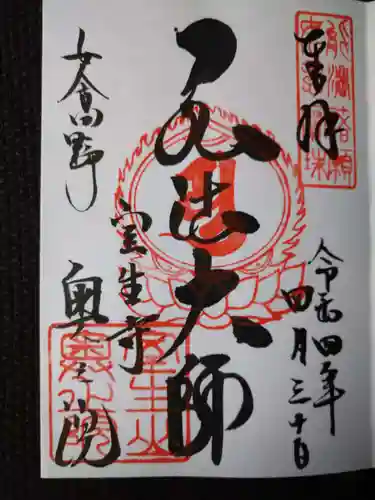 奉拝
令和四年
四月三十日
弘法大師
女人高野
室生寺
奥之院